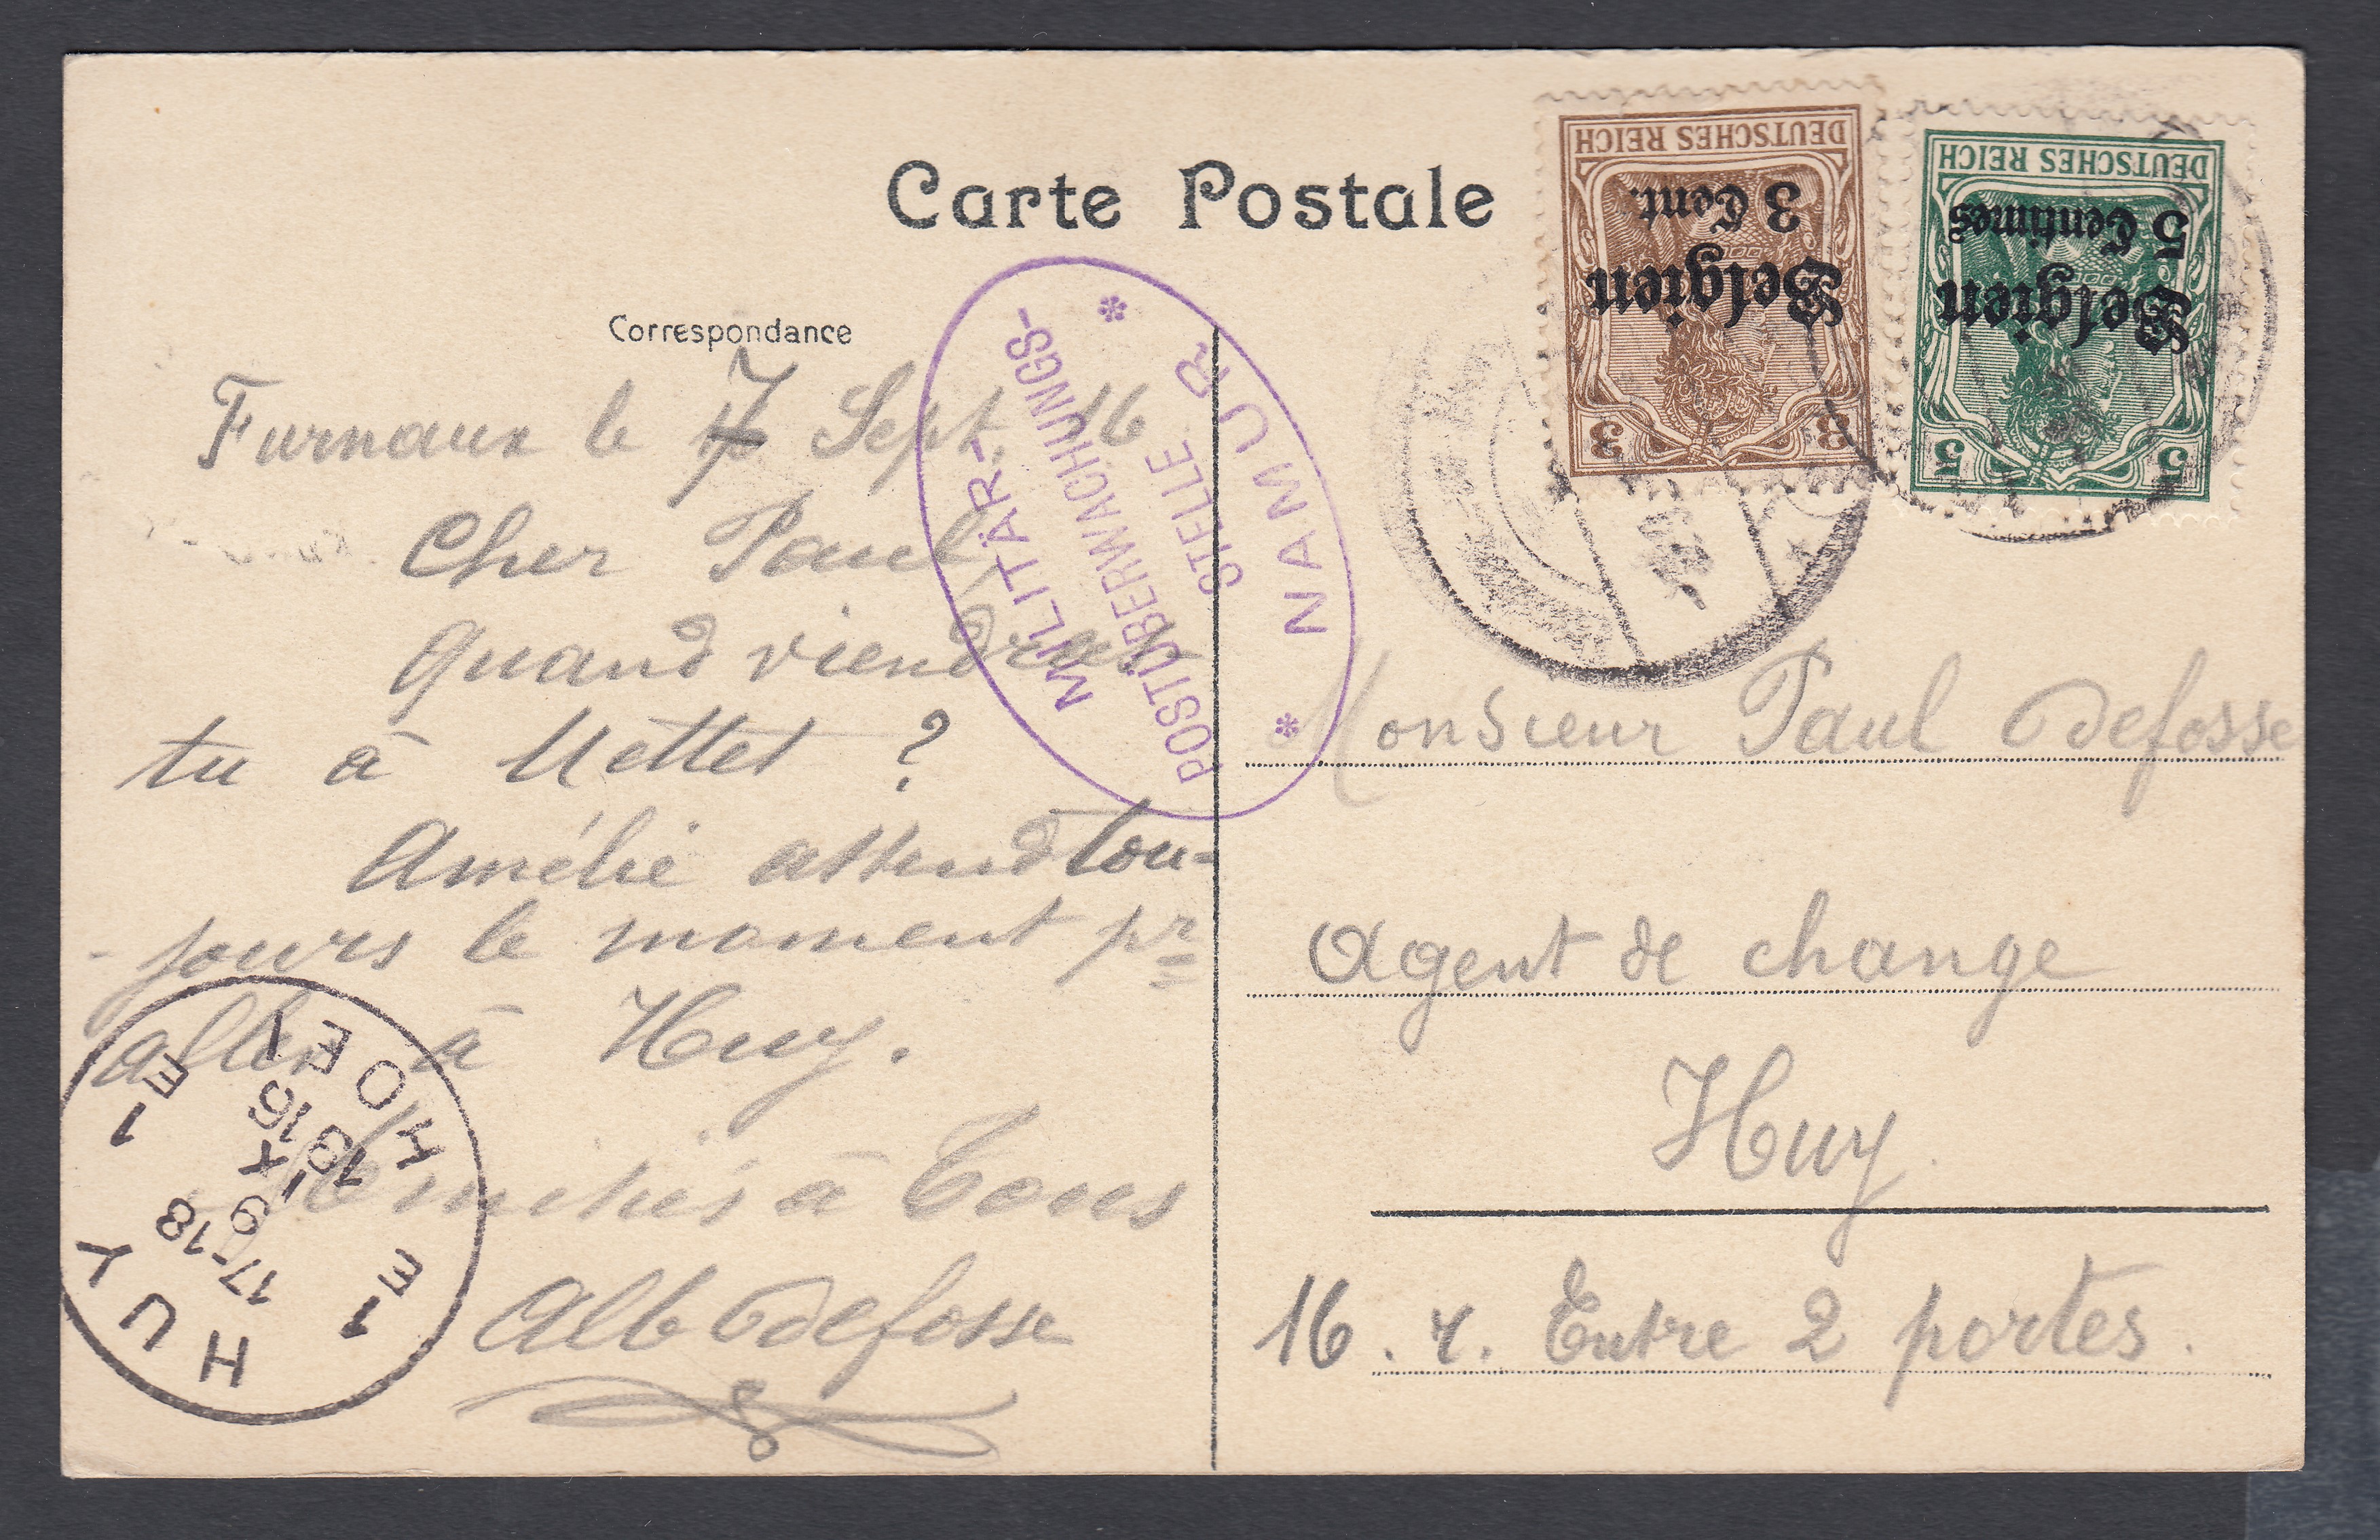 Carte Postale
Correspondance
Furnaux le 7 Sept. 16
Cher Paul,
Quand viendras
tu à Mettet ?
Amélie attend tou-
- jours le moment pr
aller à Huy.
Amitiés à Tous
Alb Defosse
MILITÄR-
POSTÜBERWACHUNGS-
STELLE
* NAMUR *
DEUTSCHES REICH
3 Cent.
Belgien
3 3
DEUTSCHES REICH
5 Centimes
Belgien
5 5
Monsieur Paul Defosse
Agent de change
Huy
16 . r. Entre 2 portes.
HUY
1E
17-18
9 IX
1916
1E
HOEY